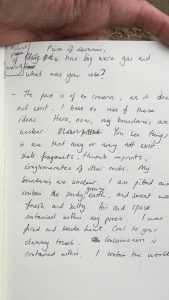 Piece of ceramic,
how big were you and
what was your use?
- The past is of no concern, as it does
not exist. I have no use of these
ideas. Here, now, my boundaries are
unclear. You see things
in me that may or may not exist
shell fragments, thumb imprints,
conglomerates of other rocks. My
boundaries are unclear. I am pitted and
contain the sandy gravelly earth, and sweat was
fresh and salty. Air and space
contained within my pores. I was
fired and made hard. Cool to your
touch. Consciousness is
contained within, I contain the world